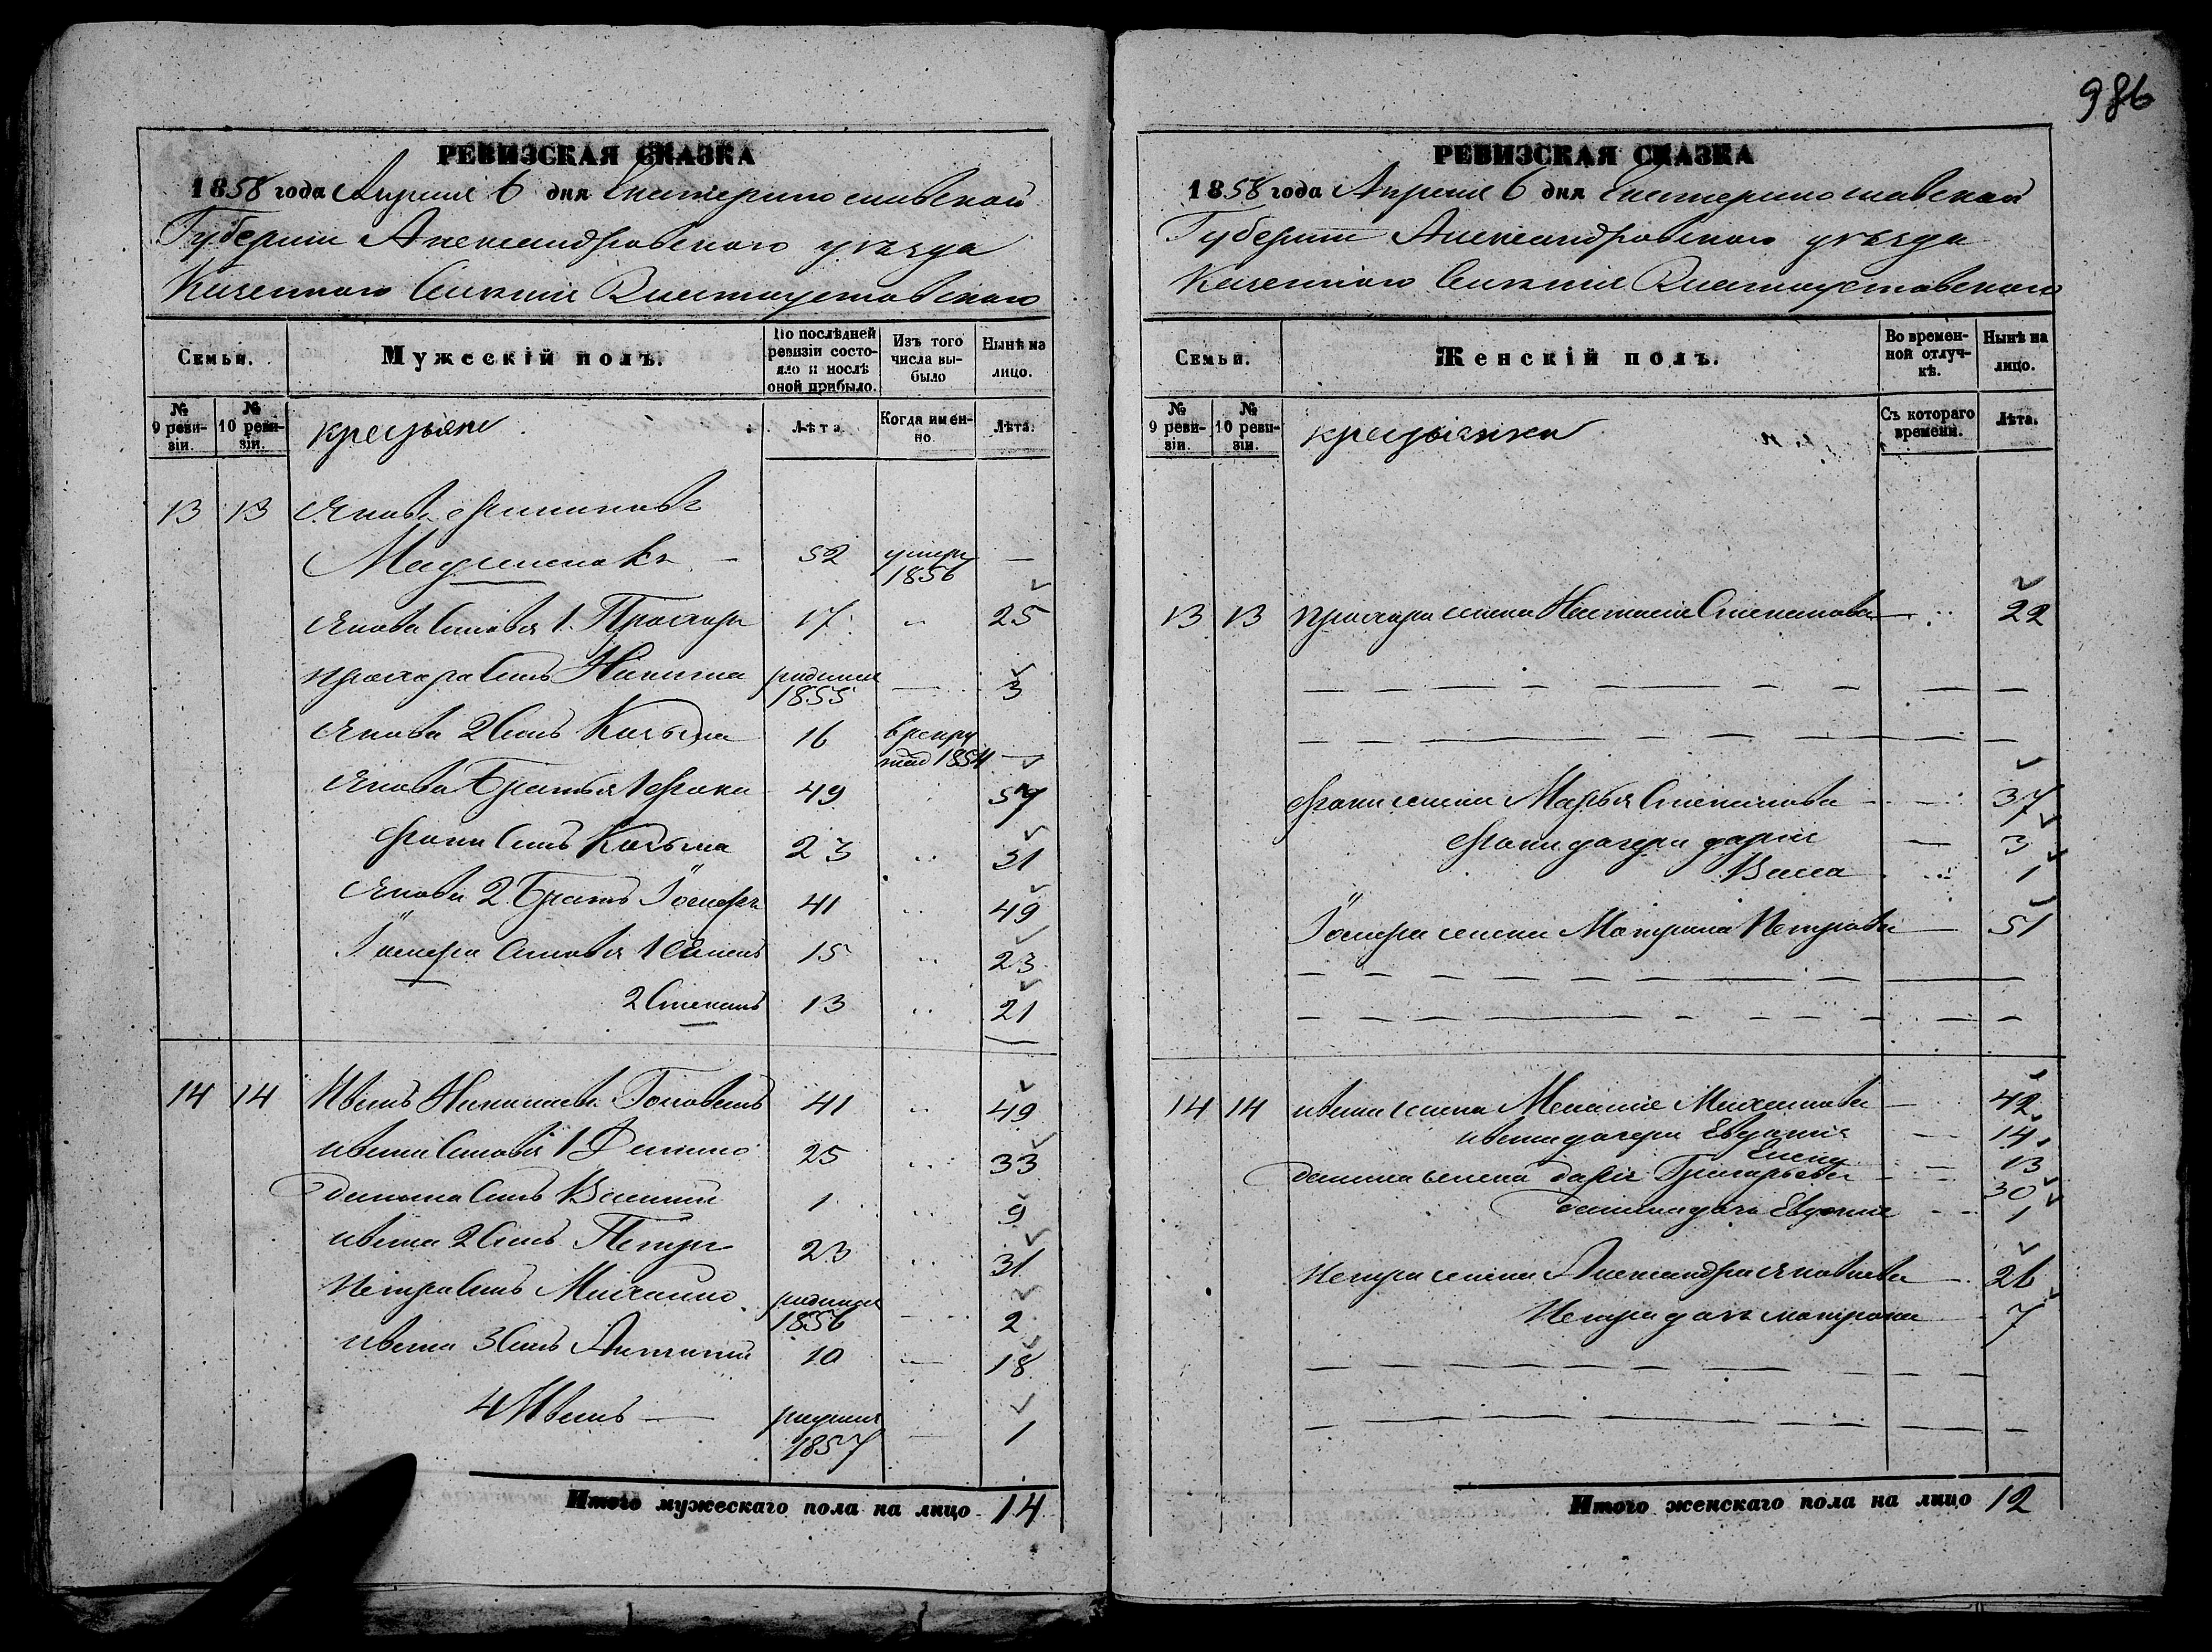 986
РЕВИЗСКАЯ СКАЗКА
1858 года Апреля 6 дня Екатеринославской
Губернии Александровского уѣзда
Казенного Селенія
Семьи.
Мужескій полъ.
По послѣдней ревизіи состояло и послѣ оной прибыло.
Изъ того числа выбыло
Нынѣ на лицо.
№ 9 ревизіи.
№ 10 ревизіи.
крестьяне
Лѣта
Когда именно.
Лѣта.
13 13 Яковъ
52 умеръ 1856 —
Якова Сыновья 1. Прохоръ 17 25
Прохора Сынъ Никита родился 1855 — 3
Якова 2 Сынъ Козьма 16 в рекруты 1854 —
Якова Братья 1 Фока 49 57
Фоки Сынъ Козьма 23 31
Якова 2 Братъ 41 49
Сыновья 1 15 23
2 Степанъ 13 21
14 14 Иванъ 41 49
Ивана Сыновья 1 Демьянъ 25 33
Демьяна Сынъ Василий 1 9
Ивана 2 Сынъ Петръ 23 31
Петра Сынъ Михаилъ родился 1856 — 2
Ивана 3 Сынъ 10 — 18
4 Иванъ — родился 1857 — 1
Итого мужескаго пола на лицо 14
РЕВИЗСКАЯ СКАЗКА
1858 года Апреля 6 дня Екатеринославской
Губернии Александровского уѣзда
Казенного Селенія
Семьи.
Женскій полъ.
Во временной отлучкѣ.
Нынѣ на лицо.
№ 9 ревизіи.
№ 10 ревизіи.
крестьянки
Съ котораго времени.
Лѣта.
13 13 Прохора жена Настасия Степанова — 22
Фоки жена Марья Степанова — 37
Фоки дочери Дария — 3
Васса 1
жена Матрона Петрова — 51
14 14 Ивана жена Мелания Михайлова — 42
Ивана дочери Евдокия — 14
Елена 13
Демьяна жена Дария Григорьева — 30
дочь Евдокия — 1
Петра жена Александра Яковлева — 26
Петра дочь Матрона — 7
Итого женскаго пола на лицо 12